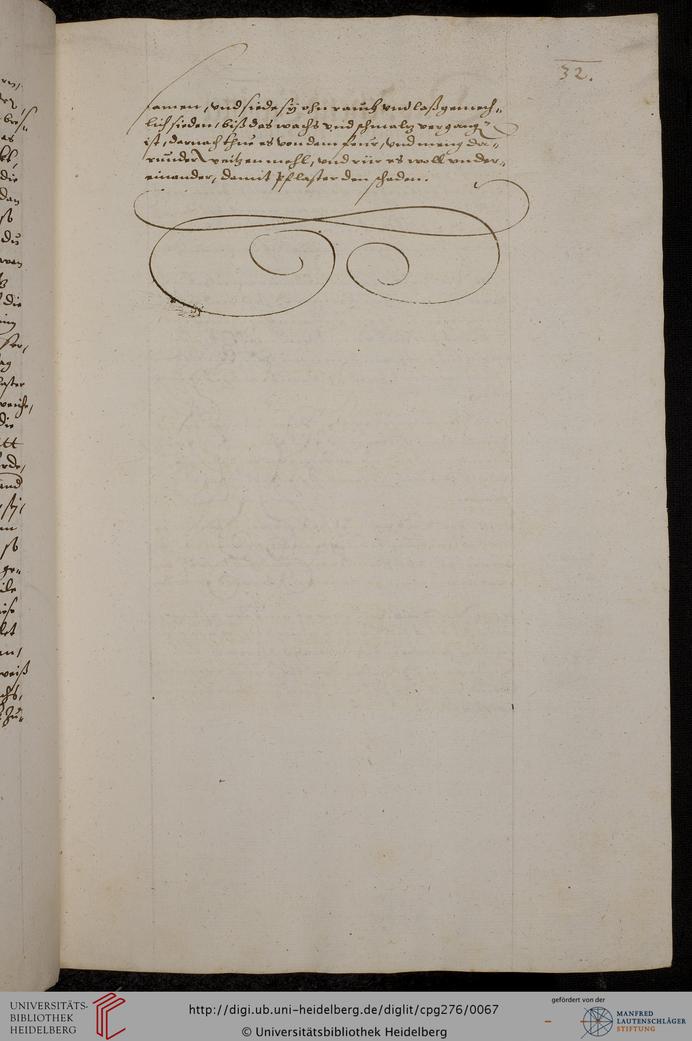 32.
samen, vnd siede sÿ ohn rauch vnd laß gemech-
lich sieden, biß das wachs vnd schmaltz vergang
ist, darnach thue es von dem feur, vnd meng da-
runder weitzen mehl, vnd rüer es woll vnder-
einander, damit pflaster den schaden.
UNIVERSITÄTS-
BIBLIOTHEK
HEIDELBERG
http://digi.ub.uni-heidelberg.de/diglit/cpg276/0067
© Universitätsbibliothek Heidelberg
gefördert von der
MANFRED
LAUTENSCHLÄGER
STIFTUNG